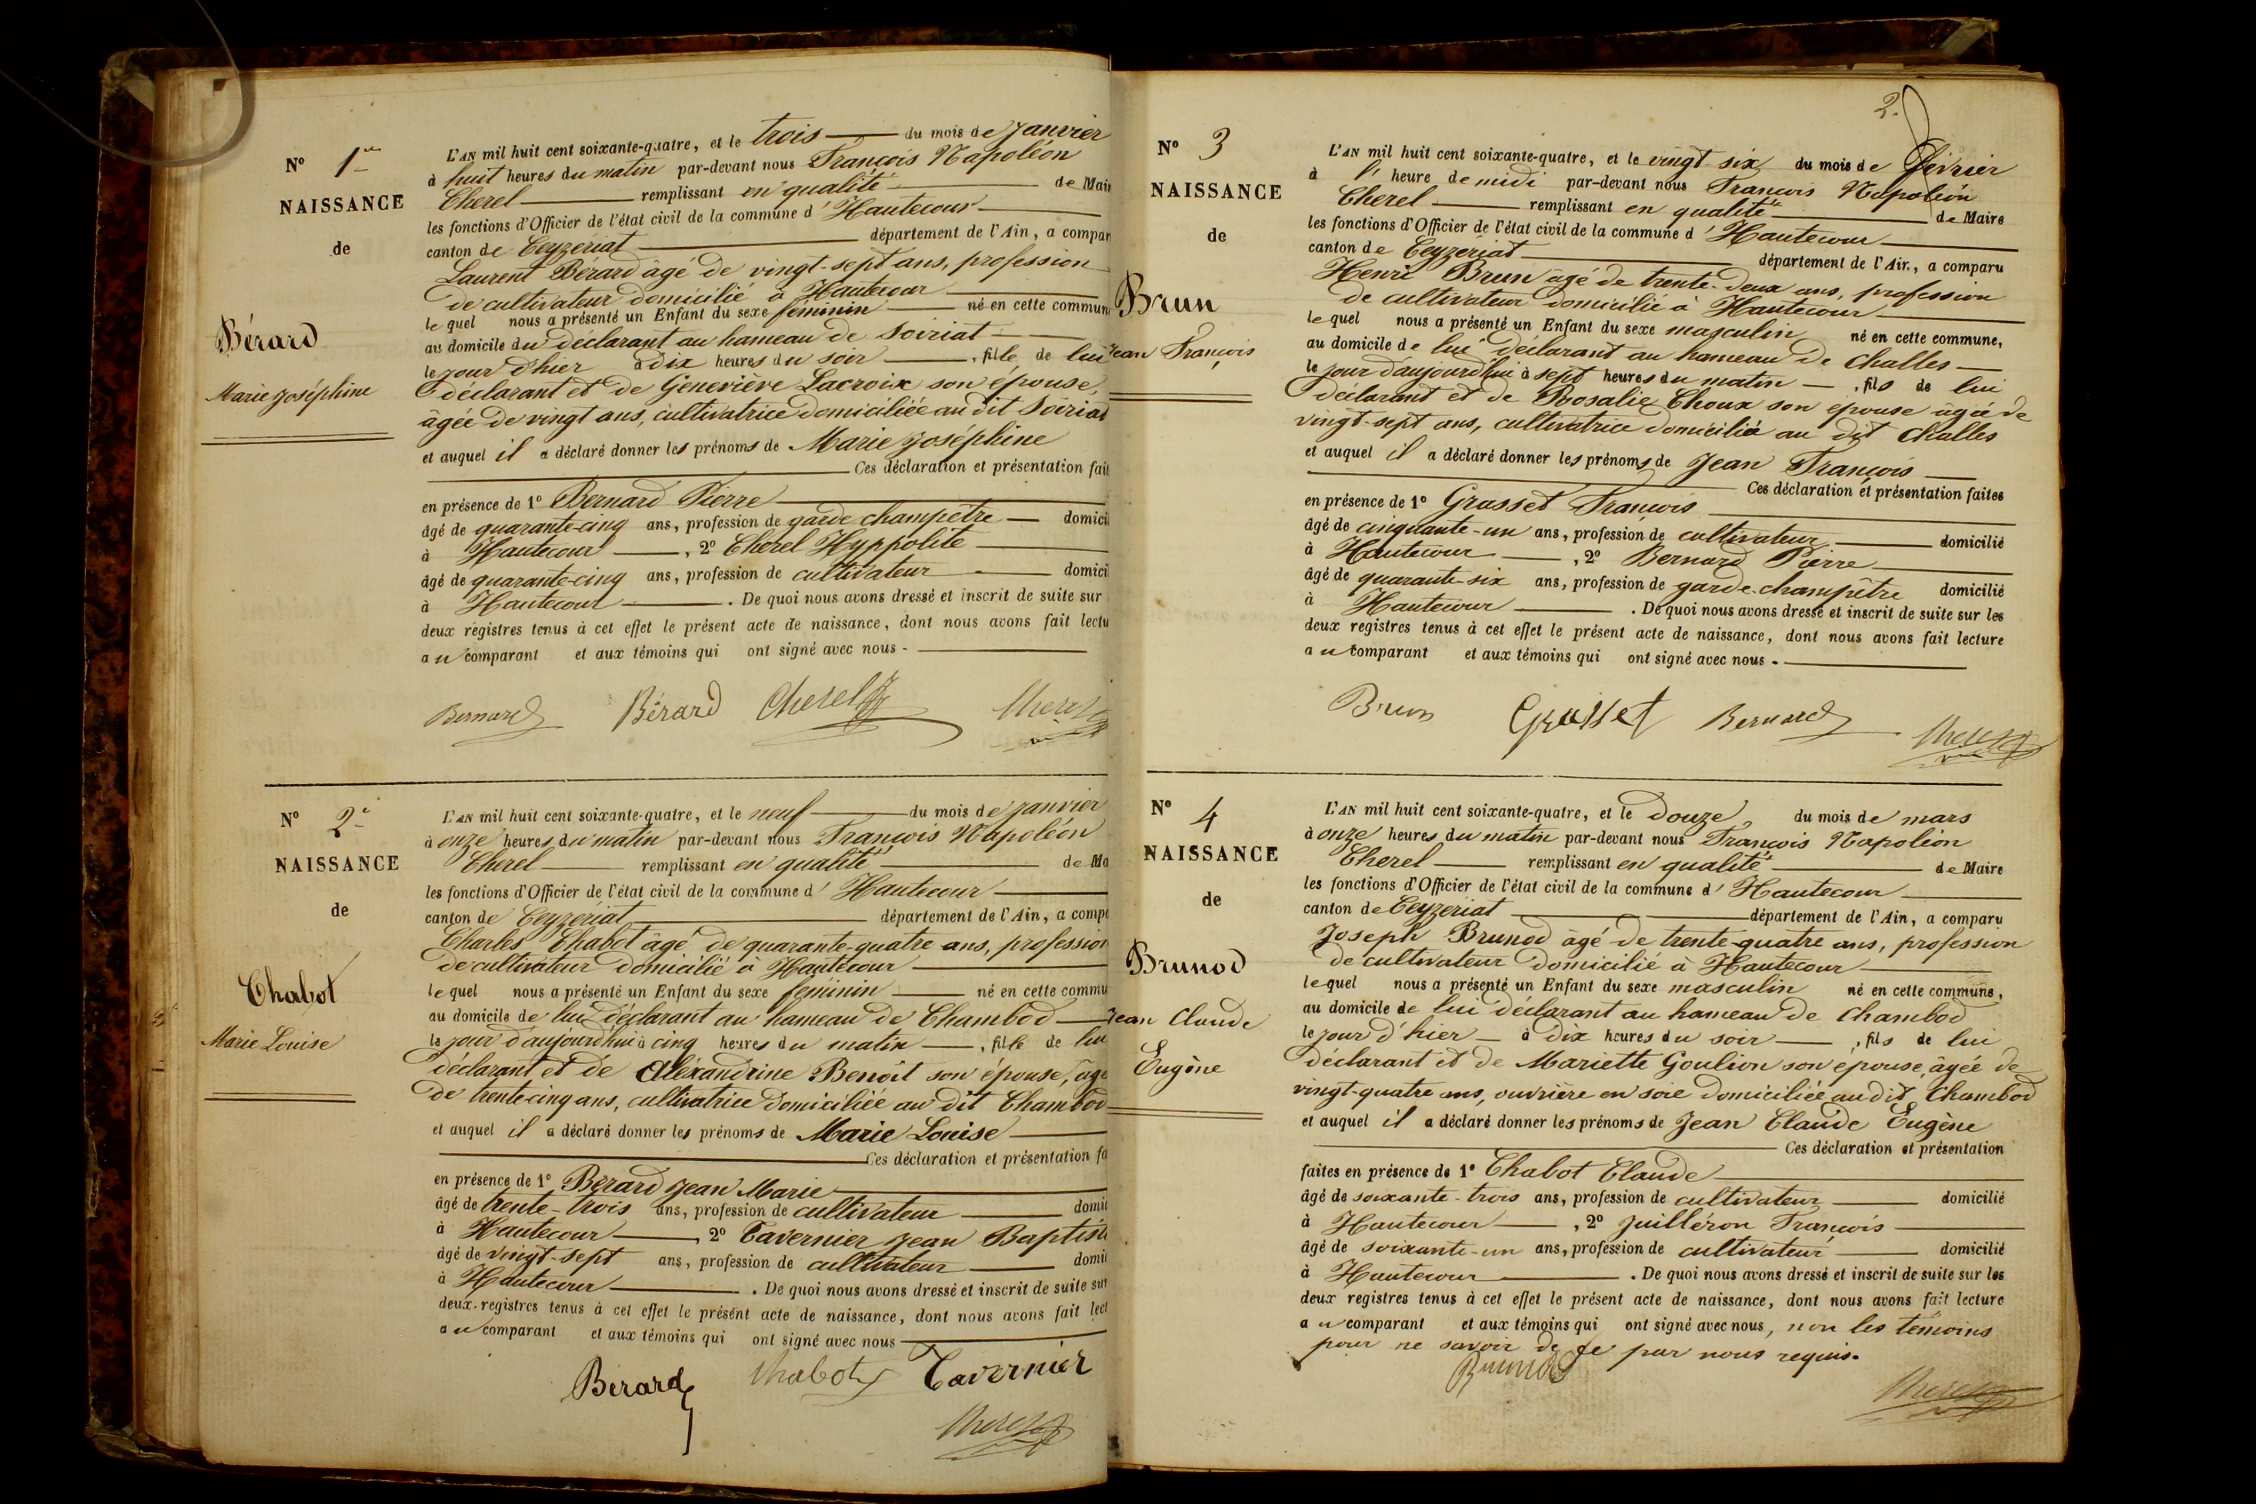 N° 1er
NAISSANCE
de
Bérard
Marie Joséphine
L'AN mil huit cent soixante-quatre, et le trois du mois de Janvier
à huit heures du matin par-devant nous François Napoléon
Cherel remplissant en qualité de Mair
les fonctions d'Officier de l'état civil de la commune d' Hautecour
canton de Ceyzériat département de l'Ain, a compar
Laurent Bérard âgé de vingt-sept ans, profession
de cultivateur domicilié à Hautecour
le quel nous a présenté un Enfant du sexe féminin né en cette commun
au domicile du déclarant au hameau de Soiriat
le jour d'hier à dix heures du soir, fille de lui
déclarant et de Geneviève Lacroix son épouse,
âgée de vingt ans, cultivatrice domiciliée au dit Soiriat
et auquel il a déclaré donner les prénoms de Marie Joséphine
Ces déclaration et présentation fait
en présence de 1° Bernard Pierre
âgé de quarante-cinq ans, profession de garde champêtre domicil
à Hautecour, 2° Cherel Hyppolite
âgé de quarante-cinq ans, profession de cultivateur domicil
à Hautecour. De quoi nous avons dressé et inscrit de suite sur
deux registres tenus à cet effet le présent acte de naissance, dont nous avons fait lectu
au comparant et aux témoins qui ont signé avec nous.
Bernard Bérard Cherel Cherel
N° 2e
NAISSANCE
de
Chabot
Marie Louise
L'AN mil huit cent soixante-quatre, et le neuf du mois de janvier
à onze heures du matin par-devant nous François Napoléon
Cherel remplissant en qualité de Ma
les fonctions d'Officier de l'état civil de la commune d' Hautecour
canton de Ceyzériat département de l'Ain, a compa
Charles Chabot âgé de quarante-quatre ans, profession
de cultivateur domicilié à Hautecour
le quel nous a présenté un Enfant du sexe féminin né en cette commu
au domicile de lui déclarant au hameau de Chambod
le jour d'aujourd'hui à cinq heures du matin, fille de lui
déclarant et de Aléxandrine Benoit son épouse, âgé
de trente-cinq ans, cultivatrice domiciliée au dit Chambod
et auquel il a déclaré donner les prénoms de Marie Louise
Ces déclaration et présentation fa
en présence de 1° Bérard Jean Marie
âgé de trente-trois ans, profession de cultivateur domic
à Hautecour, 2° Tavernier Jean Baptist
âgé de vingt-sept ans, profession de cultivateur domic
à Hautecour. De quoi nous avons dressé et inscrit de suite sur
deux registres tenus à cet effet le présent acte de naissance, dont nous avons fait lect
au comparant et aux témoins qui ont signé avec nous
Berard Chabot Tavernier
Cherel
2.
N° 3
NAISSANCE
de
Brun
Jean François
L'AN mil huit cent soixante-quatre, et le vingt six du mois de février
à 1 heure de midi par-devant nous François Napoléon
Cherel remplissant en qualité de Maire
les fonctions d'Officier de l'état civil de la commune d' Hautecour
canton de Ceyzériat département de l'Ain, a comparu
Henri Brun âgé de trente-deux ans, profession
de cultivateur domicilié à Hautecour
le quel nous a présenté un Enfant du sexe masculin né en cette commune,
au domicile de lui déclarant au hameau de Challes
le jour d'aujourd'hui à sept heures du matin, fils de lui
déclarant et de Rosalie Choux son épouse âgée de
vingt-sept ans, cultivatrice domiciliée au dit Challes
et auquel il a déclaré donner les prénoms de Jean François
Ces déclaration et présentation faites
en présence de 1° Grasset François
âgé de cinquante-un ans, profession de cultivateur domicilié
à Hautecour, 2° Bernard Pierre
âgé de quarante-six ans, profession de garde-champêtre domicilié
à Hautecour. De quoi nous avons dressé et inscrit de suite sur les
deux registres tenus à cet effet le présent acte de naissance, dont nous avons fait lecture
au comparant et aux témoins qui ont signé avec nous.
Brun Grasset Bernard Cherel
N° 4
NAISSANCE
de
Brunod
Jean Claude
Eugène
L'AN mil huit cent soixante-quatre, et le Douze, du mois de mars
à onze heures du matin par-devant nous François Napoléon
Cherel remplissant en qualité de Maire
les fonctions d'Officier de l'état civil de la commune d' Hautecour
canton de Ceyzeriat département de l'Ain, a comparu
Joseph Brunod âgé de trente-quatre ans, profession
de cultivateur domicilié à Hautecour
le quel nous a présenté un Enfant du sexe masculin né en cette commune,
au domicile de lui déclarant au hameau de Chambod
le jour d'hier à dix heures du soir, fils de lui
déclarant et de Mariette Goulion son épouse, âgée de
vingt-quatre ans, ouvrière en soie domiciliée au dit Chambod
et auquel il a déclaré donner les prénoms de Jean Claude Eugène
Ces déclaration et présentation
faites en présence de 1° Chabot Claude
âgé de soixante-trois ans, profession de cultivateur domicilié
à Hautecour, 2° Juilléron François
âgé de soixante-un ans, profession de cultivateur domicilié
à Hautecour. De quoi nous avons dressé et inscrit de suite sur les
deux registres tenus à cet effet le présent acte de naissance, dont nous avons fait lecture
au comparant et aux témoins qui ont signé avec nous, non les témoins
pour ne savoir de ce par nous requis.
Brunod
Cherel